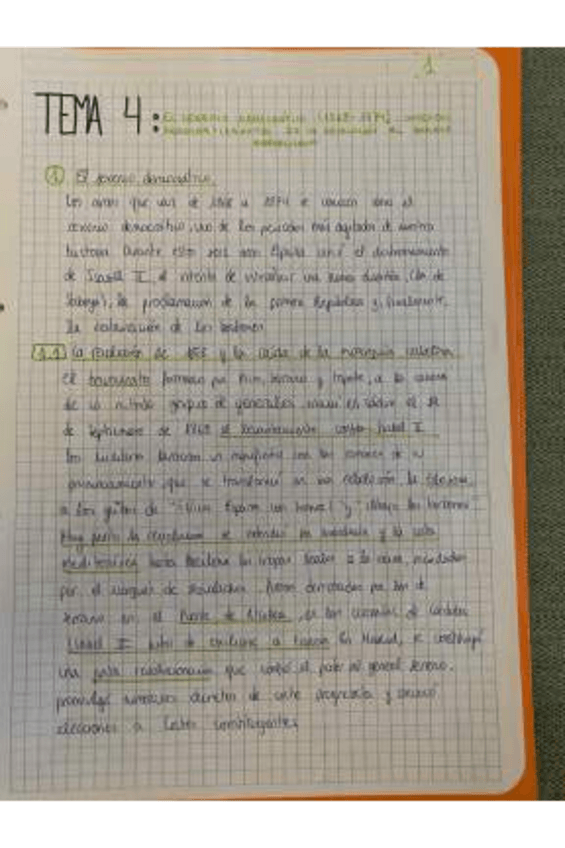 1
TEMA 4: EL SEXENIO DEMOCRÁTICO (1868-1874)
1 El sexenio democrático
Los años que van de 1868 a 1874 se conocen como el
sexenio democrático, uno de los periodos más agitados de nuestra
historia. Durante estos seis años España vivió el destronamiento
de Isabel II, el intento de una nueva dinastía, (la de
Saboya), la proclamación de la primera República y, finalmente,
la restauración de los borbones.
1.1 La revolución de 1868 y la caída de la monarquía isabelina
el formado por Prim, Serrano y Topete, a la cabeza
de un nutrido grupo de generales, inició en Cádiz el
de septiembre de 1868 el contra Isabel II.
Los un manifiesto con las razones de su
pronunciamiento, que se transformó en una rebelión
a los gritos de "¡Viva España con honra!" y "¡Abajo los borbones!"
Muy pronto la revolución se extendió por Andalucía y la costa
mediterránea. las tropas leales a la reina, mandadas
por el marqués de fueron derrotadas por las de
Serrano en el Puente de Alcolea, en las cercanías de Córdoba.
Isabel II a Francia. En Madrid, se constituyó
una junta revolucionaria que el poder al general Serrano.
promulgó numerosos decretos de corte progresista y convocó
elecciones a Cortes constituyentes.